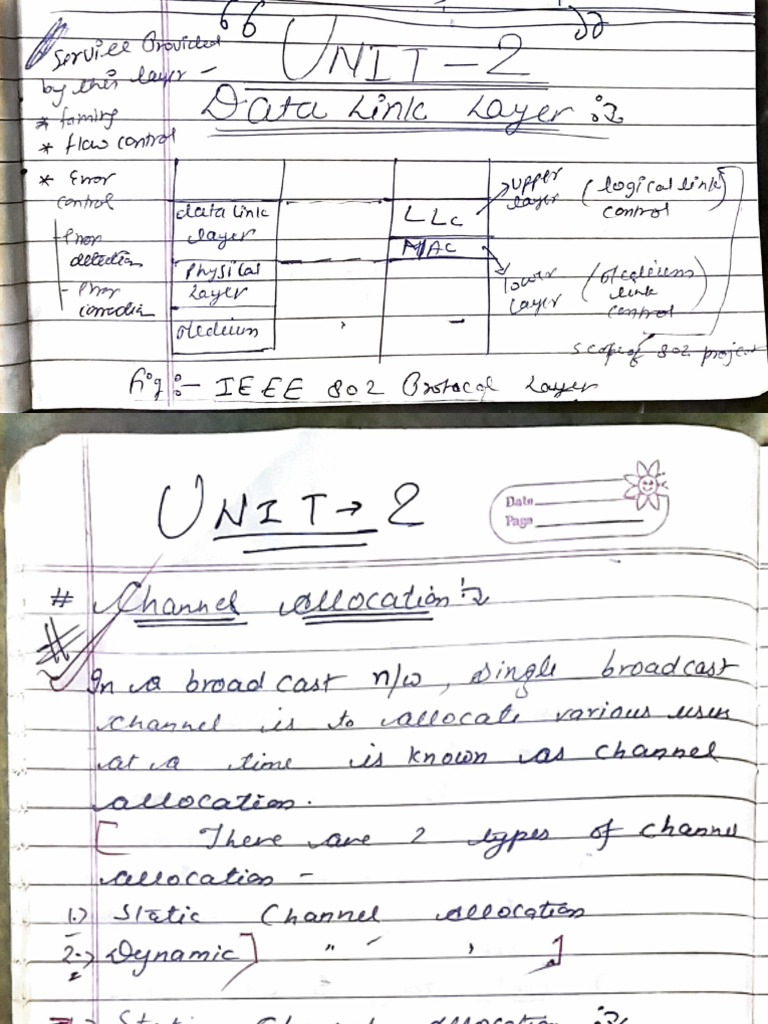 UNIT-2
Data Link Layer :-
Service Provided
by this layer -
* framing
* flow control
* Error
control
- Error
detection
- Error
data link
layer
Physical
layer
LLC
MAC
upper
layer
(logical link
control
lower
layer
link
control
scope of 802 project
fig :- IEEE 802 Protocol Layer
UNIT → 2
Date
Page
# Channel allocation :-
#
In a broad cast n/w, single broadcast
channel is to allocate various user
at a time is known as channel
allocation.
[ There are 2 types of channel
allocation -
1.) Static Channel allocation
2.) Dynamic] " " ]
Static Channel allocation :-